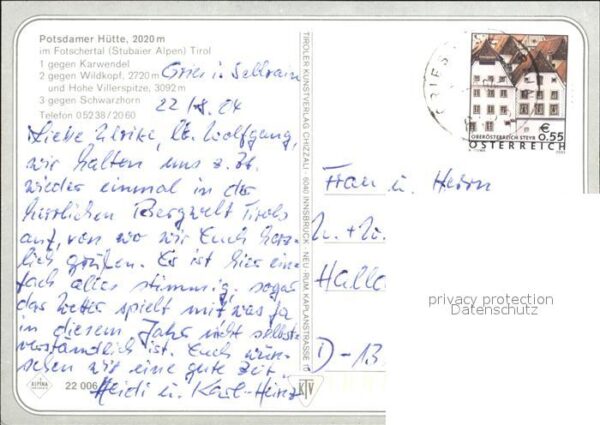 Potsdamer Hütte, 2020 m
im Fotschertal (Stubaier Alpen) Tirol
1 gegen Karwendel
2 gegen Wildkopf, 2720 m
und Hohe Villerspitze, 3092 m
3 gegen Schwarzhorn
Telefon 05238/2060
Gries i. Sellrain
22/8.04
Liebe Ulrike, lb. Wolfgang,
wir halten uns z. Zt.
wieder einmal in der
herrlichen Bergwelt Tirols
auf, von wo wir Euch herz-
lich grüßen. Es ist hier ein-
fach alles stimmig, sogar
das Wetter spielt mit was ja
in diesem Jahr nicht selbst-
verständlich ist. Euch wün-
schen wir eine gute Zeit
Heidi u. Karl-Heinz
ALPINA
22 006
TIROLER KUNSTVERLAG CHIZZALI · 6040 INNSBRUCK · NEU-RUM, KAPLANSTRASSE
KTV
GRIES
€ 0,55
OBERÖSTERREICH STEYR
ÖSTERREICH
Frau u. Herrn
Halle
D-13
privacy protection
Datenschutz